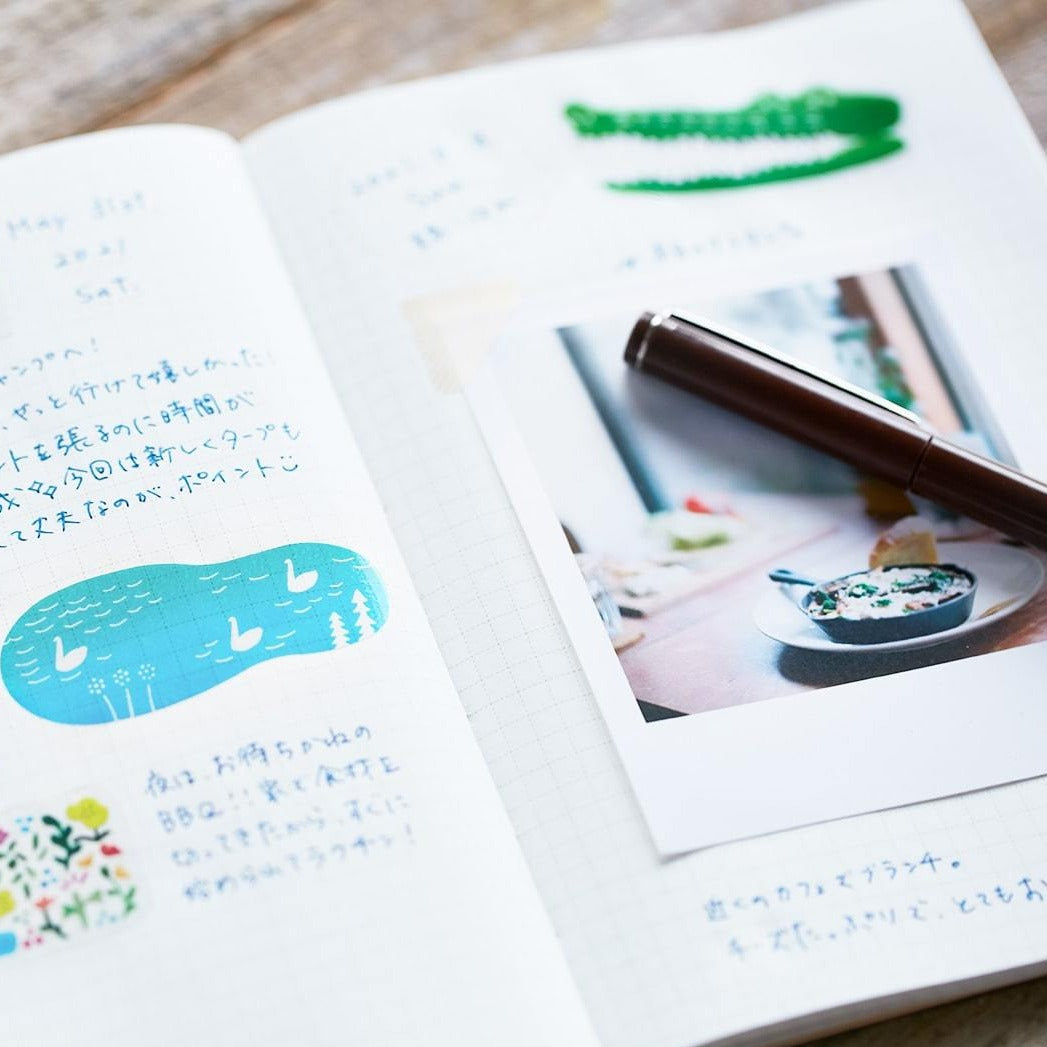 May 31st.
2021
Sat.
ャンプへ!
やっと行けて嬉しかった!
ントを張るのに時間が
今回は新しくタープも
て丈夫なのが、ポイント
夜は、お待ちかねの
BBQ!! 家で食材を
切ってきたから、すぐに
始められてラクチン!
Sun
近くのカフェでブランチ。
チーズたっぷりで、とてもお